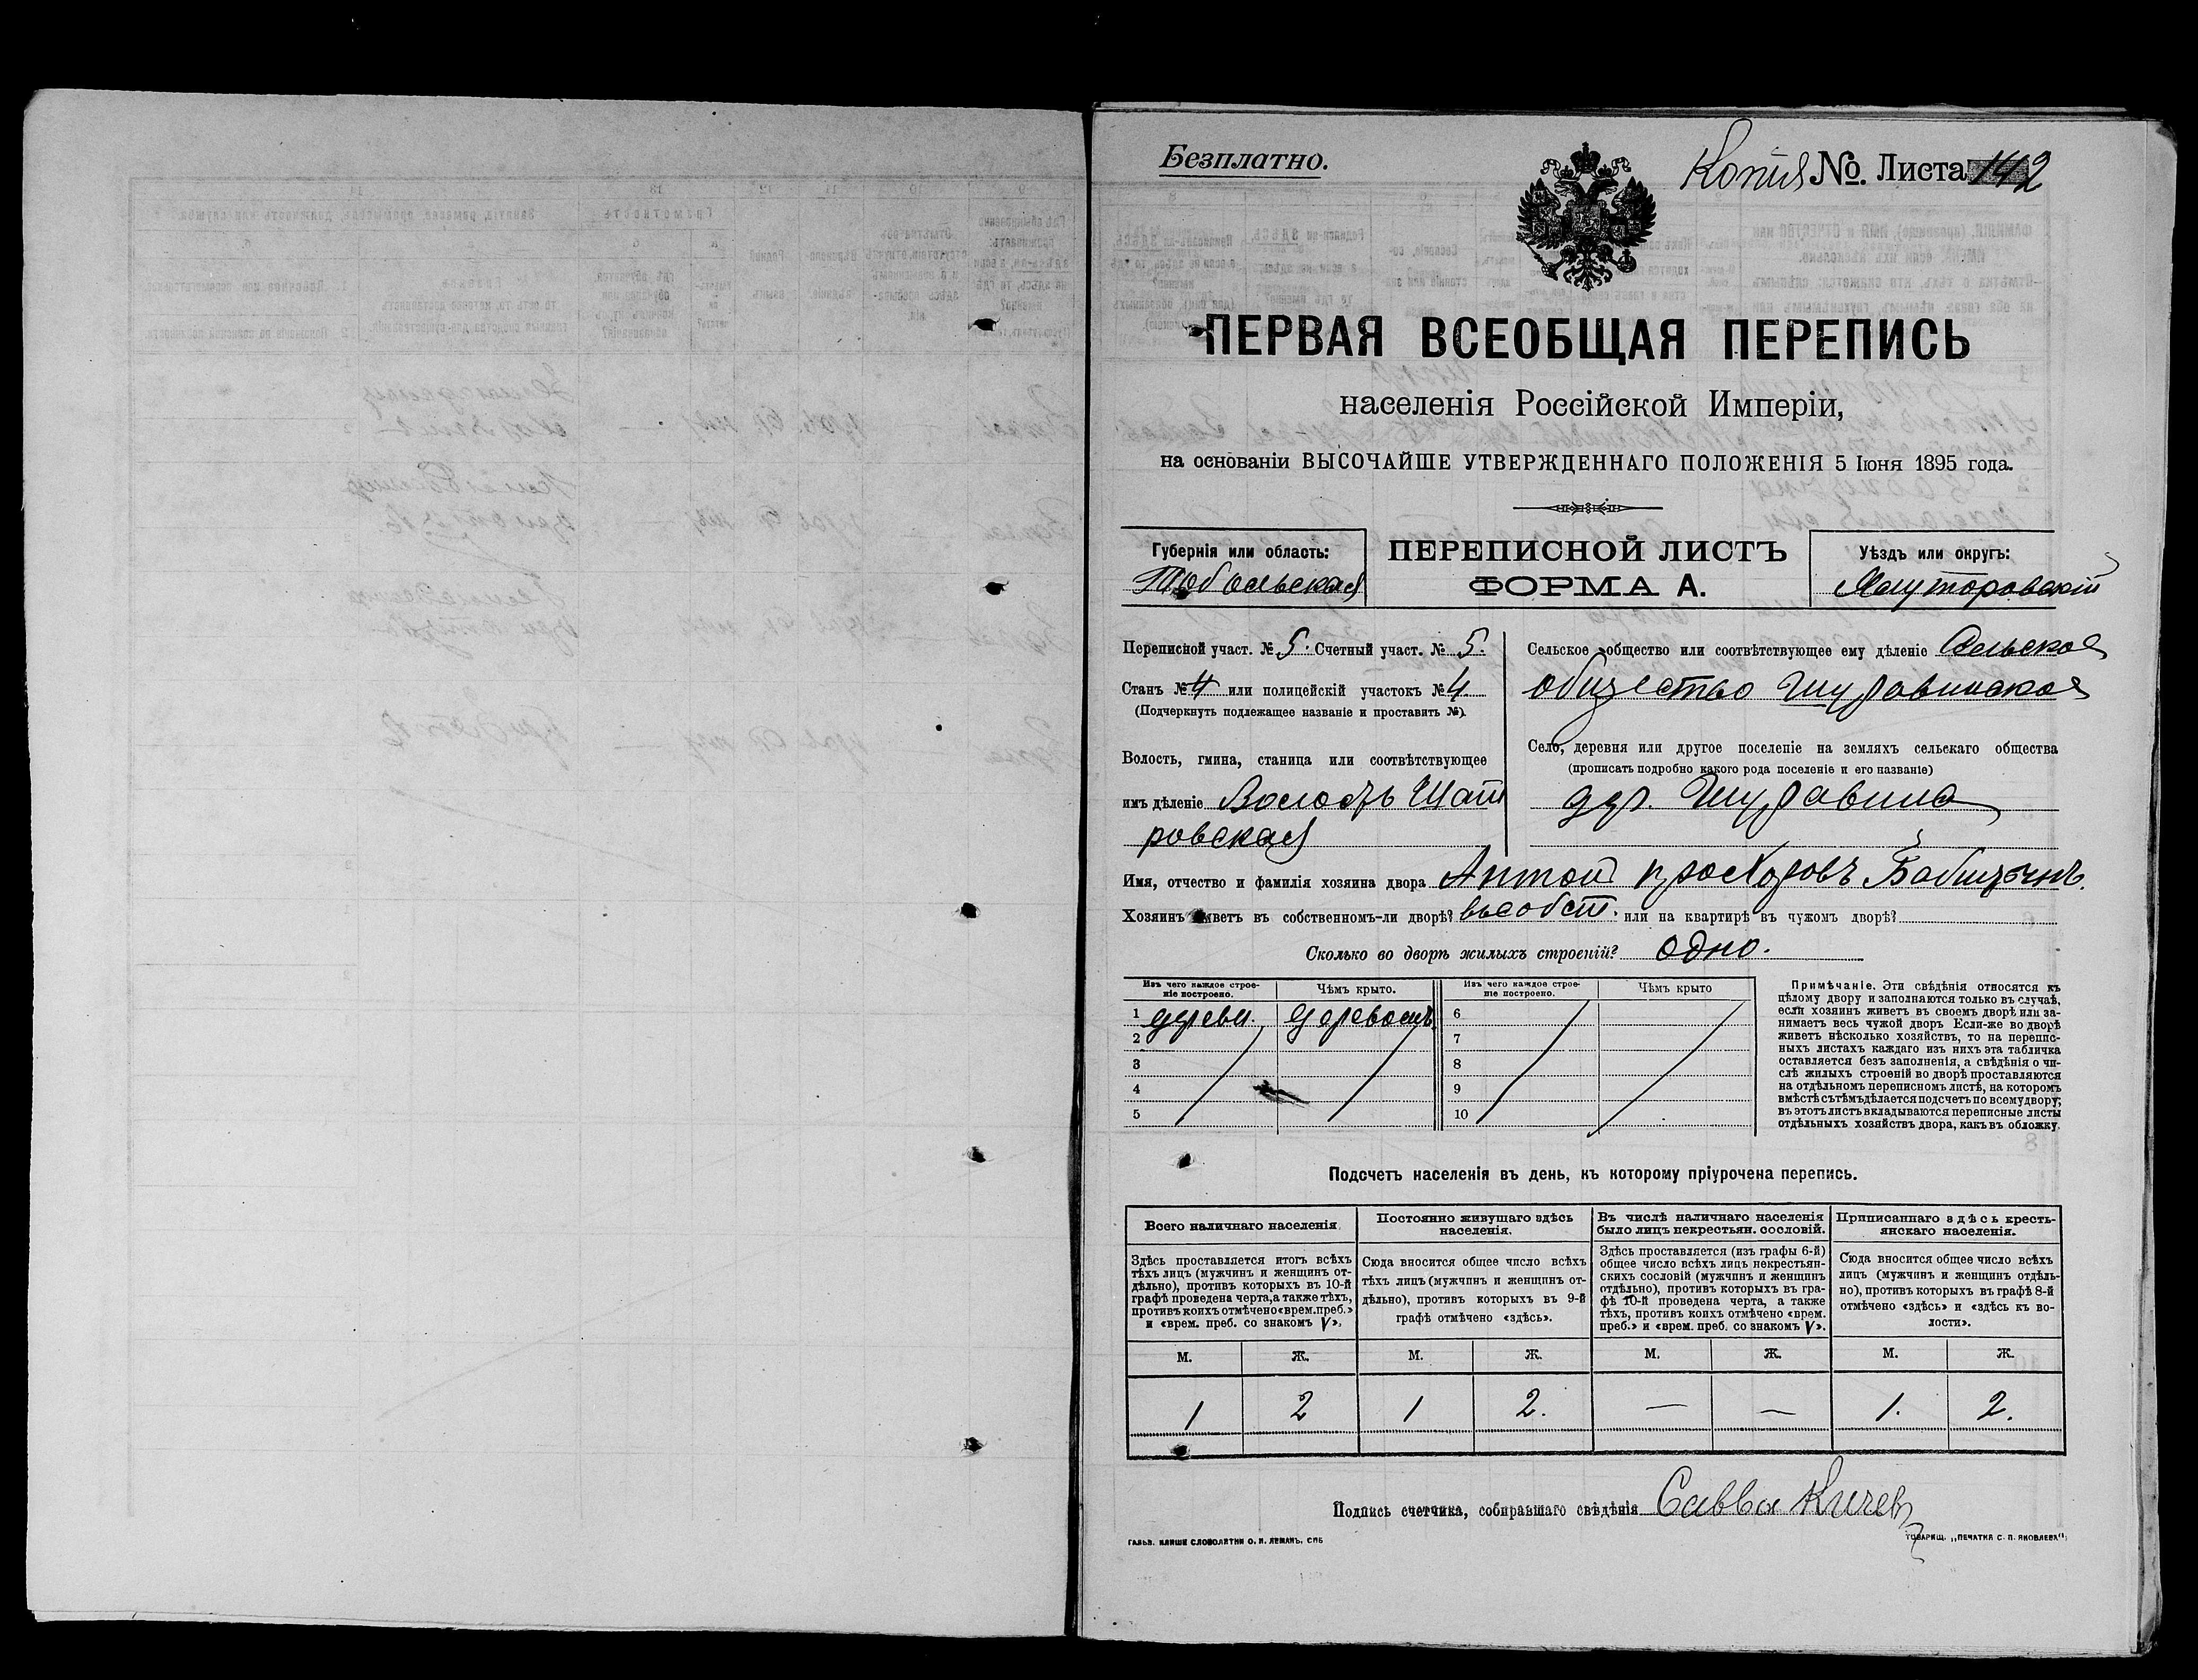 Безплатно.
Копия №. Листа 142
ПЕРВАЯ ВСЕОБЩАЯ ПЕРЕПИСЬ
населенія Россійской Имперіи,
на основаніи ВЫСОЧАЙШЕ УТВЕРЖДЕННАГО ПОЛОЖЕНІЯ 5 Іюня 1895 года.
Губернія или область:
Тобольская
ПЕРЕПИСНОЙ ЛИСТЪ
ФОРМА А.
Уѣздъ или округъ:
Ялуторовскій
Переписной участ. № 5. Счетный участ. № 5.
Станъ № 4 или полицейскій участокъ № 4
(Подчеркнуть подлежащее названіе и проставить №).
Волость, гмина, станица или соотвѣтствующее
имъ дѣленіе Волость Шат
ровская
Сельское общество или соотвѣтствующее ему дѣленіе Сельское
общество
Село, деревня или другое поселеніе на земляхъ сельскаго общества
(прописать подробно какого рода поселеніе и его названіе)
дер.
Имя, отчество и фамилія хозяина двора Антон Прохоровъ
Хозяинъ живетъ въ собственномъ-ли дворѣ? въ собст. или на квартирѣ въ чужомъ дворѣ?
Сколько во дворѣ жилыхъ строеній? одно.
Изъ чего каждое строе-
ніе построено.
Чѣмъ крыто.
Изъ чего каждое строе-
ніе построено.
Чѣмъ крыто
1 дерев. деревомъ 6
2 7
3 8
4 9
5 10
Примѣчаніе. Эти свѣдѣнія относятся къ
цѣлому двору и заполняются только въ случаѣ,
если хозяинъ живетъ въ своемъ дворѣ или за-
нимаетъ весь чужой дворъ Если-же во дворѣ
живетъ нѣсколько хозяйствъ, то на перепис-
ныхъ листахъ каждаго изъ нихъ эта табличка
оставляется безъ заполненія, а свѣдѣнія о чи-
слѣ жилыхъ строеній во дворѣ проставляются
на отдѣльномъ переписномъ листѣ, на которомъ
вмѣстѣ съ тѣмъ дѣлается подсчетъ по всему двору;
въ этотъ листъ вкладываются переписные листы
отдѣльныхъ хозяйствъ двора, какъ въ обложку.
Подсчетъ населенія въ день, къ которому пріурочена перепись.
Всего наличнаго населенія.
Здѣсь проставляется итогъ всѣхъ
тѣхъ лицъ (мужчинъ и женщинъ от-
дѣльно), противъ которыхъ въ 10-й
графѣ проведена черта, а также тѣхъ,
противъ коихъ отмѣчено «врем. преб.»
и «врем. преб. со знакомъ V».
Постоянно живущаго здѣсь
населенія.
Сюда вносится общее число всѣхъ
тѣхъ лицъ (мужчинъ и женщинъ от-
дѣльно), противъ которыхъ въ 9-й
графѣ отмѣчено «здѣсь».
Въ числѣ наличнаго населенія
было лицъ некрестьян. сословій.
Здѣсь проставляется (изъ графы 6-й)
общее число всѣхъ лицъ некрестьян-
скихъ сословій (мужчинъ и женщинъ
отдѣльно), противъ которыхъ въ гра-
фѣ 10-й проведена черта, а также
тѣхъ, противъ коихъ отмѣчено «врем.
преб.» и «врем. преб. со знакомъ V».
Приписаннаго здѣсь кресть-
янскаго населенія.
Сюда вносится общее число всѣхъ
лицъ (мужчинъ и женщинъ отдѣль-
но), противъ которыхъ въ графѣ 8-й
отмѣчено «здѣсь» и «здѣсь къ во-
лости».
М. Ж. М. Ж. М. Ж. М. Ж.
1 2 1 2. — — 1. 2.
Подпись счетчика, собиравшаго свѣдѣнія Савва Кичев
ГАЛЬВ. КЛИШЕ СЛОВОЛИТНИ О. И. ЛЕМАНЪ, СПБ
ТОВАРИЩ. „ПЕЧАТНЯ С. П. ЯКОВЛЕВА"